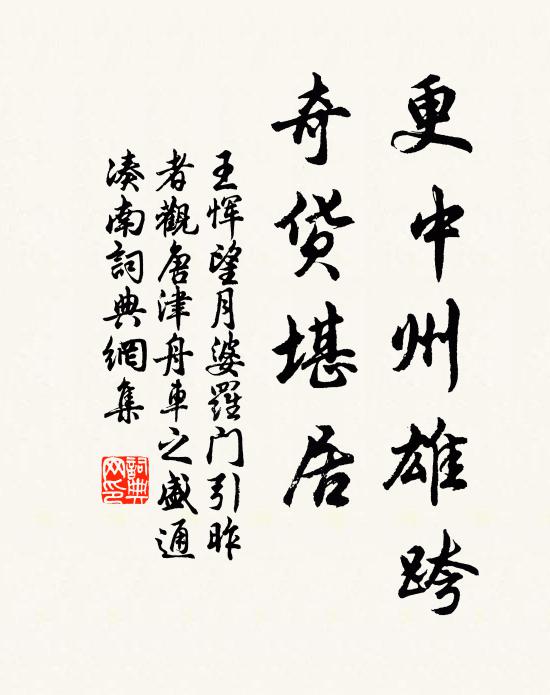 更中州雄跨
奇货堪居
王恽望月婆羅门引昨
者觀唐津舟車之盛通
凑南詞典網集
詞典
网印